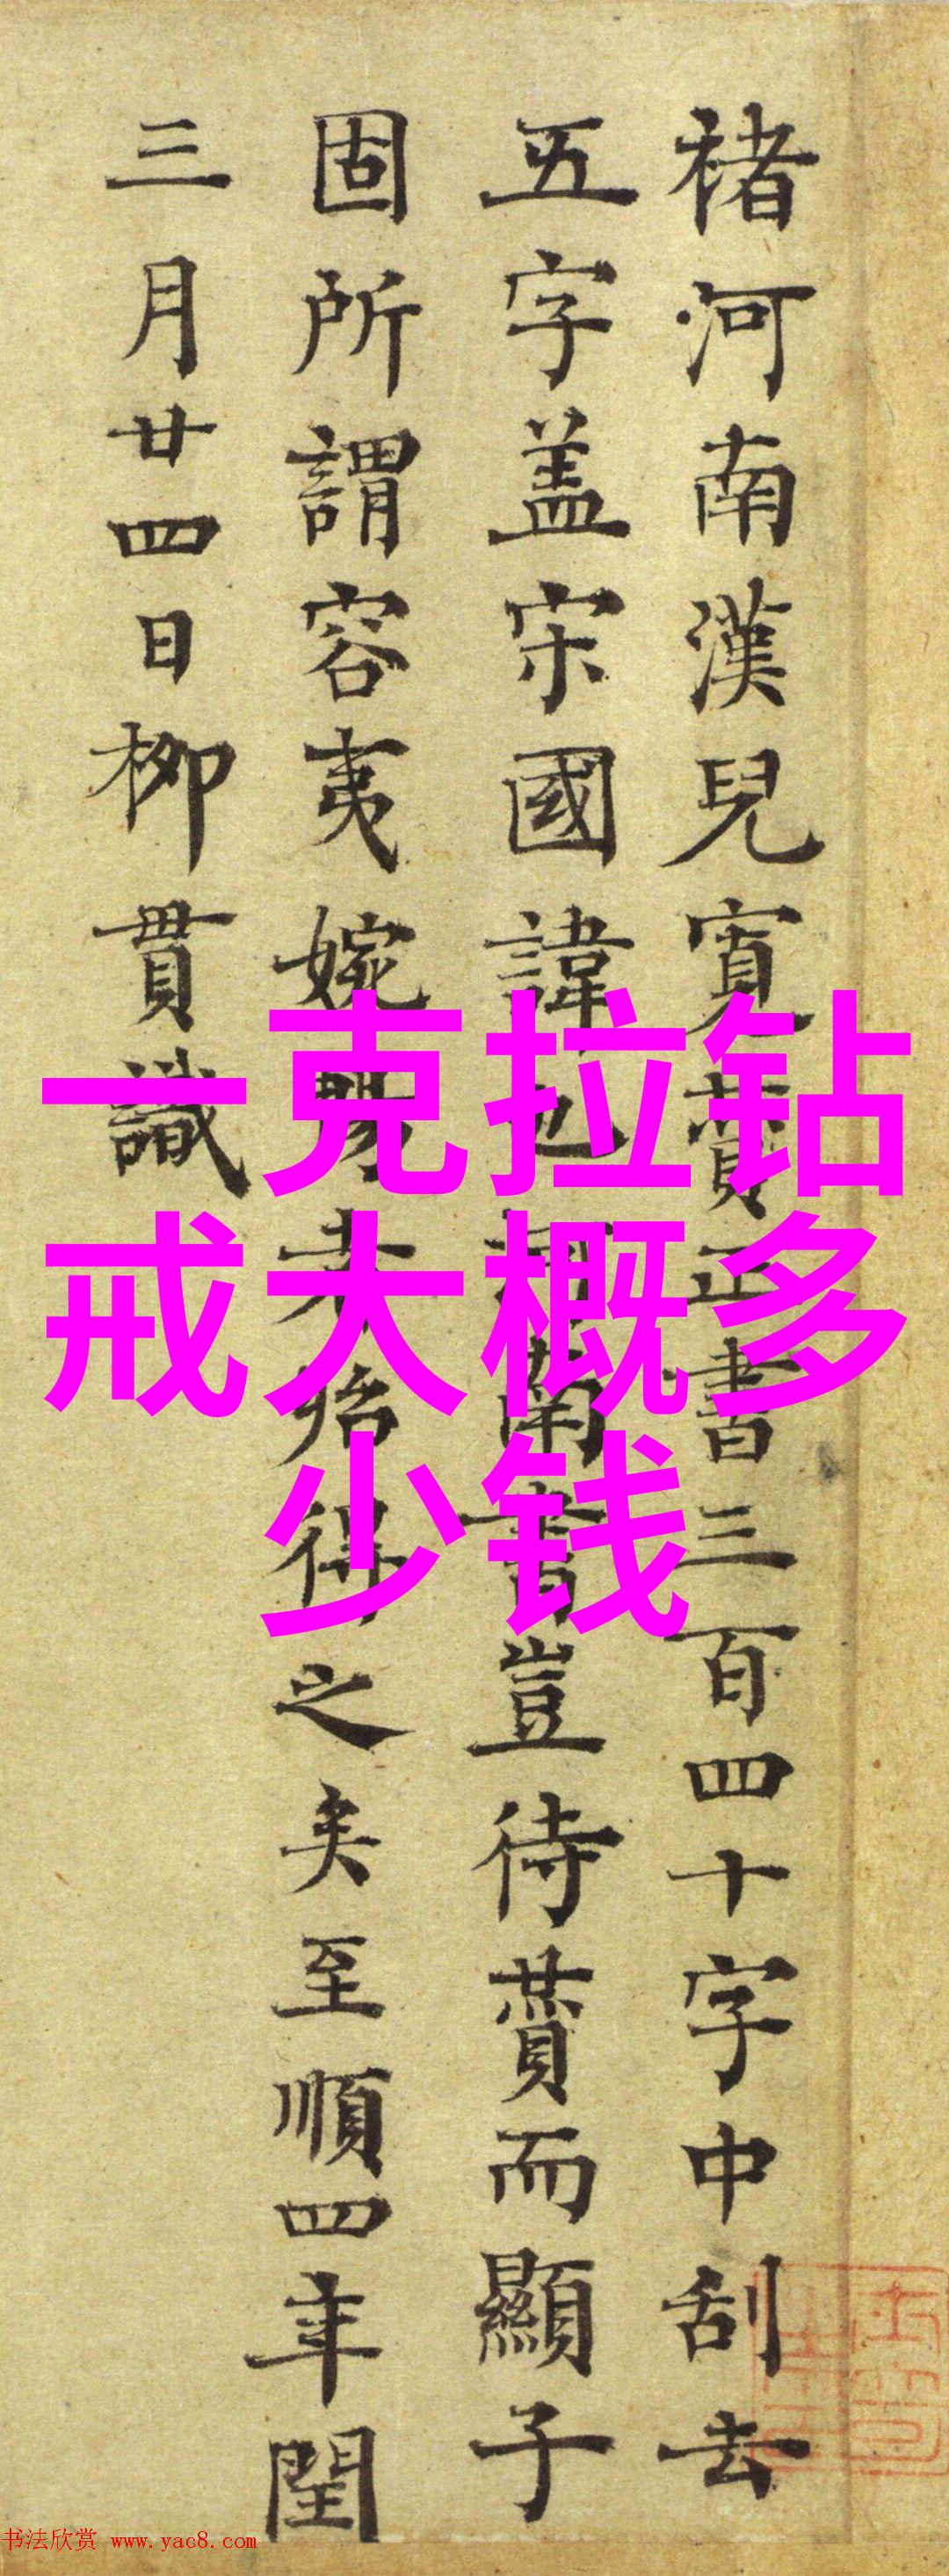 褚河南漢兒寬贊正書三百四十字中刮去
五字盖宋國諱也河南書豈待贊而顯子
固所謂容夷婉暢者殆得之矣至順四年閏
三月廿四日柳貫識
一克拉钻
戒大概多
少钱
书法欣赏 www.yac8.com